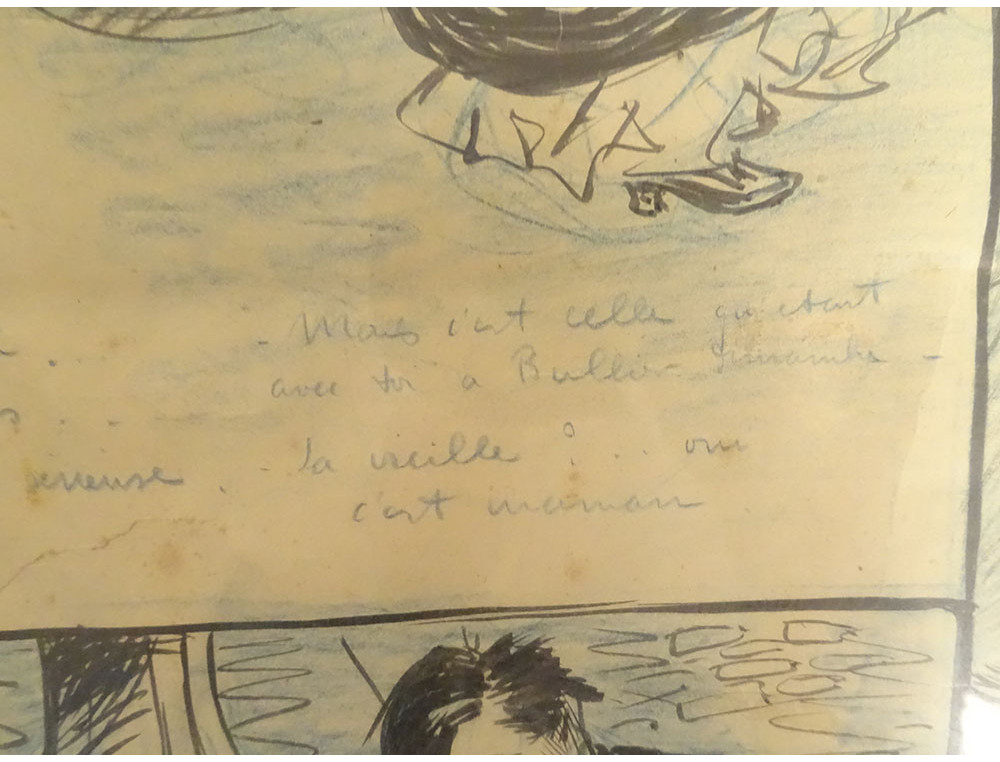 - Mais c'est celle qu'était
avec toi a Bullier dimanche -
- La vieille ? . . oui
c'est maman